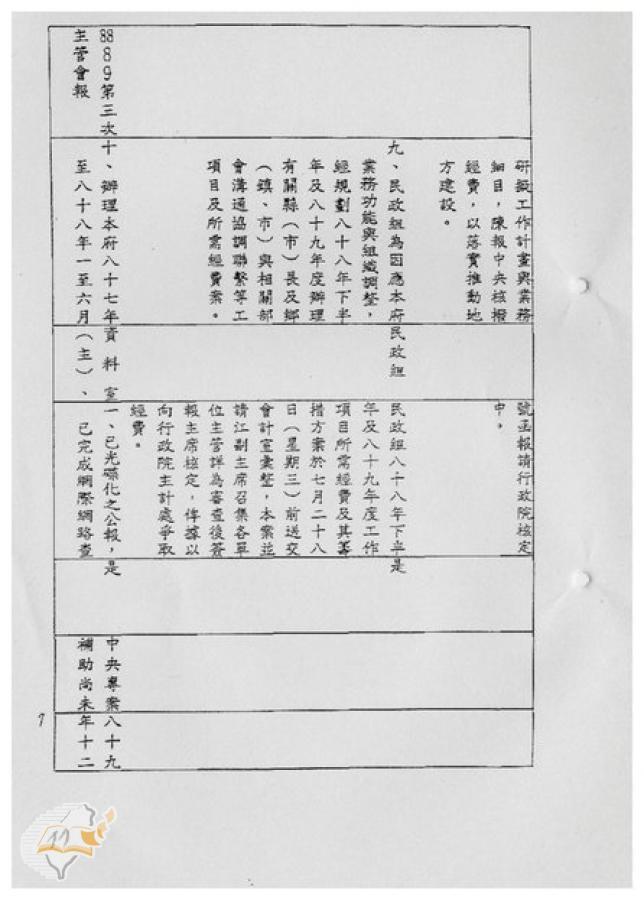 研擬工作計畫與業務
細目，陳報中央核撥
經費，以落實推動地
方建設。
號函報請行政院核定
中。
九、民政組為因應本府
業務功能與組織調整，
經規劃八十八年下半
年及八十九年度辦理
有關縣（市）長及鄉
（鎮、市）與相關部
會溝通協調聯繫等工
項目及所需經費案。
民政組
民政組八十八年下半
年及八十九年度工作
項目所需經費及其籌
措方案於七月二十八
日（星期三）前送交
會計室彙整，本案並
請江副主席召集各單
位主管詳為審查後簽
報主席核定，俾據以
向行政院主計處爭取
經費。
是
88 8 9第三次
主管會報
十、辦理本府八十七年
至八十八年一至六月
資料室
（主）、
一、已光碟化之公報，
已完成網際網路查
是
中央專案
補助尚未
八十九
年十二
7